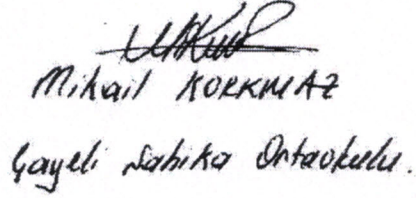 Mikail KORKMAZ
Çayeli Sabika Ortaokulu.